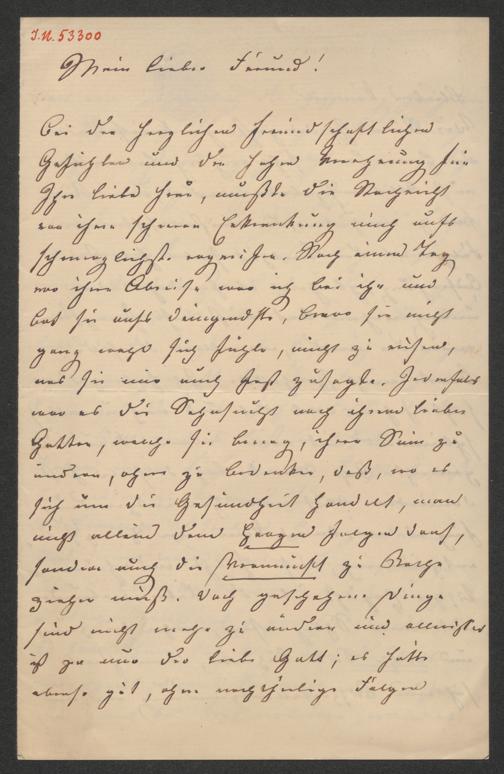 I.N. 53300
Mein lieber Freund!
Bei den herzlichen freundschaftlichen
Gefühlen und der hohen Verehrung für
Ihre liebe Frau, mußte die Nachricht
von ihrer schweren Erkrankung mich aufs
schmerzlichste ergreifen. Noch einen Tag
vor ihrer Abreise war ich bei ihr und
bat sie aufs dringendste, bevor sie nicht
ganz wohl sich fühle, nicht zu reisen,
was sie mir auch fest zusagte. Jedenfalls
war es die Sehnsucht nach ihrem lieben
Gatten, welche sie bewog, ihren Sinn zu
ändern, ohne zu bedenken, daß, wo es
sich um die Gesundheit handelt, man
nicht allein dem Herzen folgen darf,
sondern auch die Vernunft zu Rathe
ziehen muß. Doch geschehene Dinge
sind nicht mehr zu ändern und allwissend
ist ja nur der liebe Gott; es hätte
ebenso gut, ohne nachtheilige Folgen